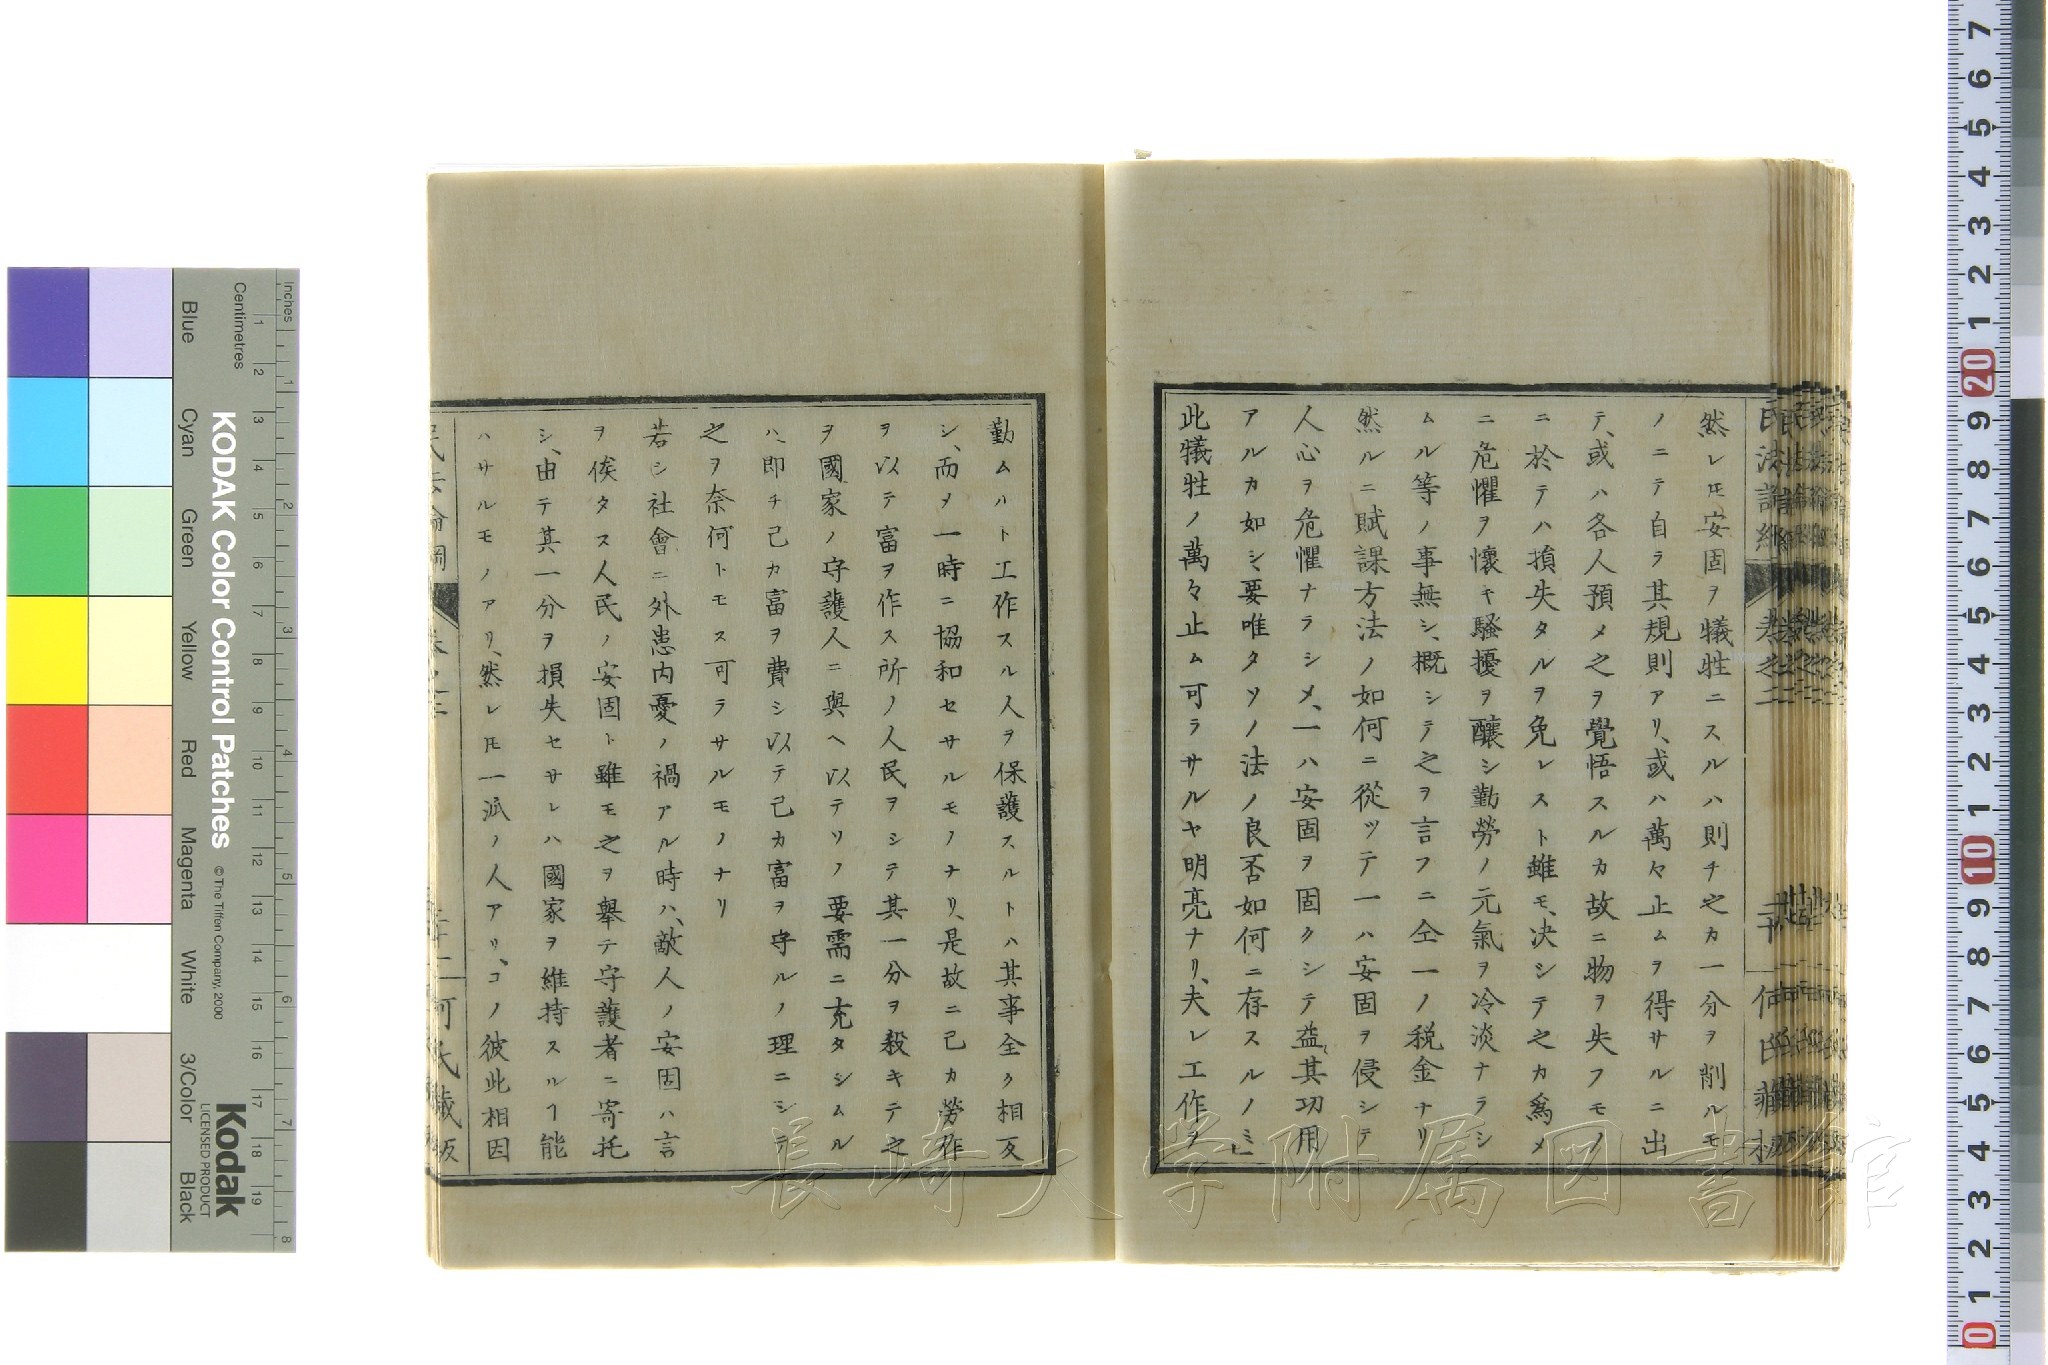 然レ𪜈安固ヲ犠牲ニスルハ則チ之カ一分ヲ削ルモ
ノニテ自ラ其規則アリ、或ハ萬々止ムヲ得サルニ出
テ、或ハ各人預メ之ヲ覺悟スルカ故ニ物ヲ失フモノ
ニ於テハ損失タルヲ免レスト雖モ、决シテ之カ爲メ
ニ危懼ヲ懷キ騷擾ヲ釀シ勤勞ノ元氣ヲ冷淡ナラシ
ムル等ノ事無シ、概シテ之ヲ言フニ仝一ノ税金ナリ
然ルニ賦課方法ノ如何ニ從ツテ一ハ安固ヲ侵シテ
人心ヲ危懼ナラシメ、一ハ安固ヲ固クシテ益其功用
アルカ如シ、要唯タソノ法ノ良否如何ニ存スルノミ
此犠牲ノ萬々止ム可ラサルヤ明亮ナリ、夫レ工作ヲ
勤ムハト工作スル人ヲ保護スルトハ其事全ク相反
シ、而メ一時ニ協和セサルモノナリ、是故ニ己カ勞作
ヲ以テ富ヲ作ス所ノ人民ヲシテ其一分ヲ殺キテ之
ヲ國家ノ守護人ニ與ヘ以テソノ要需ニ充タシムル
ハ、即チ己カ富ヲ費シ以テ己カ富ヲ守ルノ理ニシテ
之ヲ奈何トモス可ラサルモノナリ
若シ社會ニ外患内憂ノ禍アル時ハ、敵人ノ安固ハ言
ヲ俟タス人民ノ安固ト雖モ之ヲ擧テ守護者ニ寄托
シ、由テ其一分ヲ損失セサレハ國家ヲ維持スルヿ能
ハサルモノアリ、然レ𪜈一派ノ人アリ、コノ彼此相因
長崎大学附属図書館
KODAK Color Control Patches
© The Tiffen Company, 2000
Kodak
LICENSED PRODUCT
Inches
Centimetres
Blue
Cyan
Green
Yellow
Red
Magenta
White
3/Color
Black